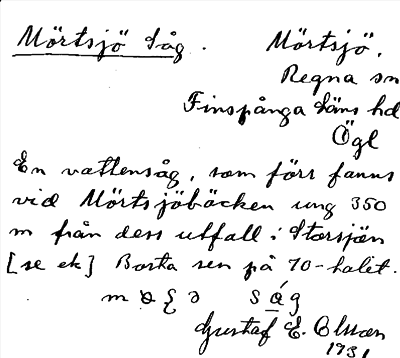 Mörtsjö Såg. Mörtsjö.
Regna sn
Finspånga läns hd
Ögl
En vattensåg, som förr fanns
vid Mörtsjöbäcken ung 350
m från dess utfall i Storsjön
[se ek] Borta sen på 70-talet.
Gustaf E. Olsson
1931